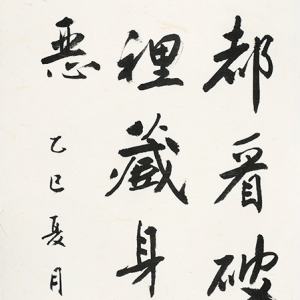 都看破
裡藏身
惡
乙巳夏月